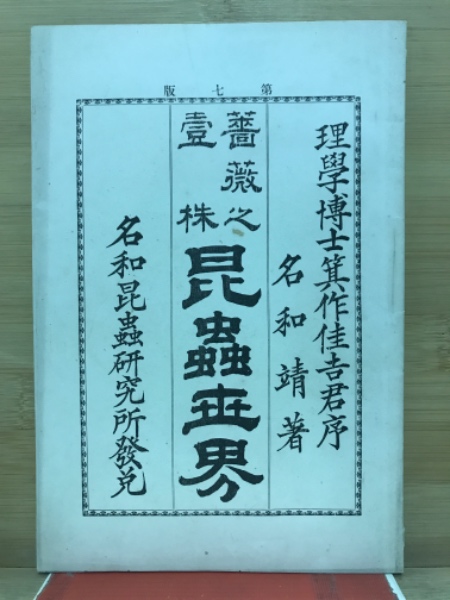 第七版
理學博士箕作佳吉君序
名和靖著
薔薇之
壹株
昆蟲世界
名和昆蟲研究所發兌